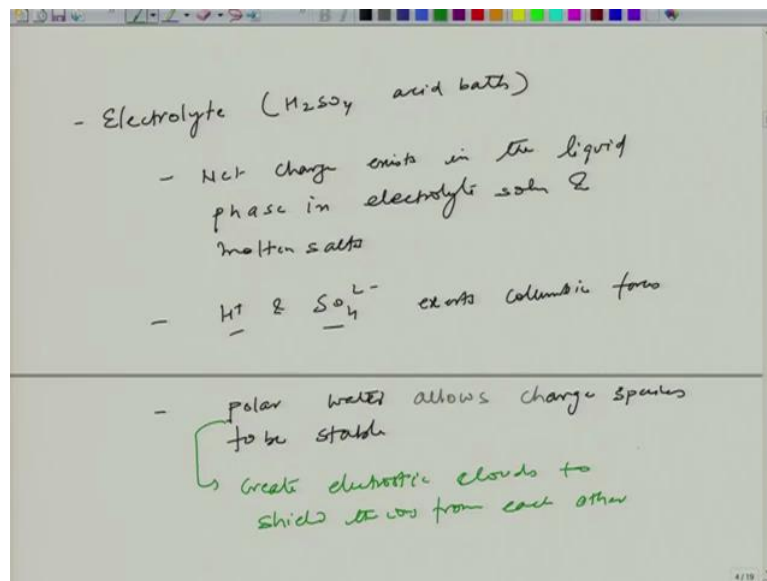 - Electrolyte (H2SO4 acid bath)
- Net charge exists in the liquid
phase in electrolyte soln &
molten salts
- H+ & SO4 2- exerts columbic force
- polar water allows charge species
to be stable
↳ create electrostic clouds to
shield from each other
4/19